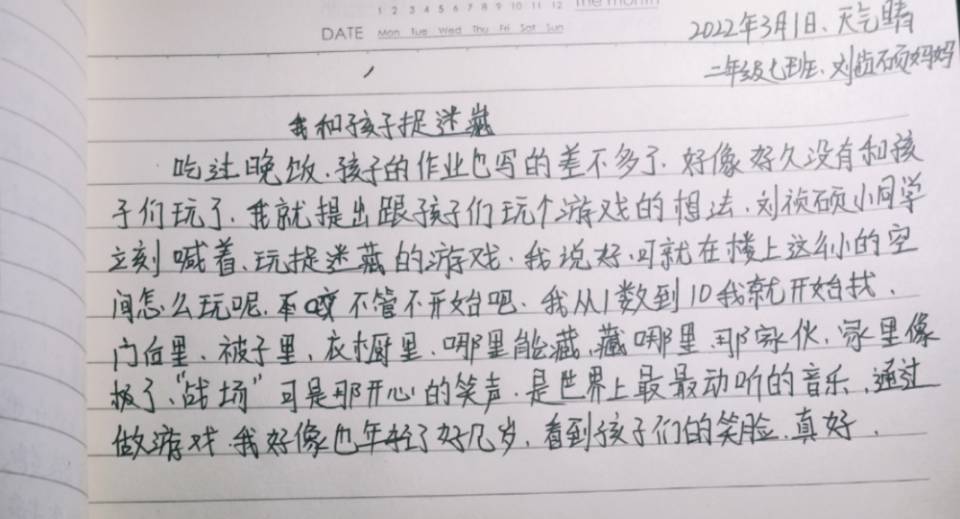 1 2 3 4 5 6 7 8 9 10 11 12 The month
DATE Mon Tue Wed Thu Fri Sat Sun
2022年3月1日、天气晴
二年级七班、刘祯硕妈妈
我和孩子捉迷藏
吃过晚饭、孩子的作业也写的差不多了、好像好久没有和孩
子们玩了、我就提出跟孩子们玩个游戏的想法、刘祯硕小同学
立刻喊着、玩捉迷藏的游戏、我说好、可就在楼上这么小的空
间怎么玩呢、不管不开始吧、我从1数到10我就开始找、
门后里、被子里、衣橱里、哪里能藏、藏哪里、那家伙、家里像
极了“战场”可是那开心的笑声、是世界上最最动听的音乐、通过
做游戏、我好像也年轻了好几岁、看到孩子们的笑脸、真好、